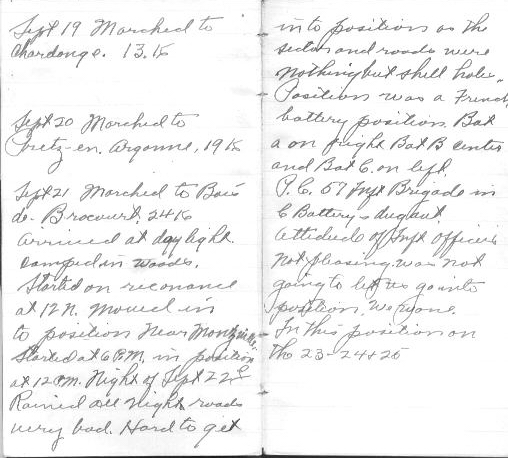 Sept 19 Marched to
Chardonge. 13. K
Sept 20 Marched to
Pretz-en. Argonne, 19 K
Sept 21 Marched to Bois
de. Brocourt. 24 K
arrived at daylight.
camped in woods.
Started on reconance
at 12 N. moved in
to position near Montzville.
Started at 6 P.M. in position
at 12 P.M. Night of Sept 22d
Rained all night roads
very bad. Hard to get
into positions as the
sector and roads were
nothing but shell holes.
Position was a French
battery position. Bat
A on right Bat B center
and Bat C. on left.
P.C. 57 Inft Brigade in
C Battery dugout.
Attidude of Inft officers
not pleasing. was not
going to let us go into
position. We
In this position on
the 23-24+25